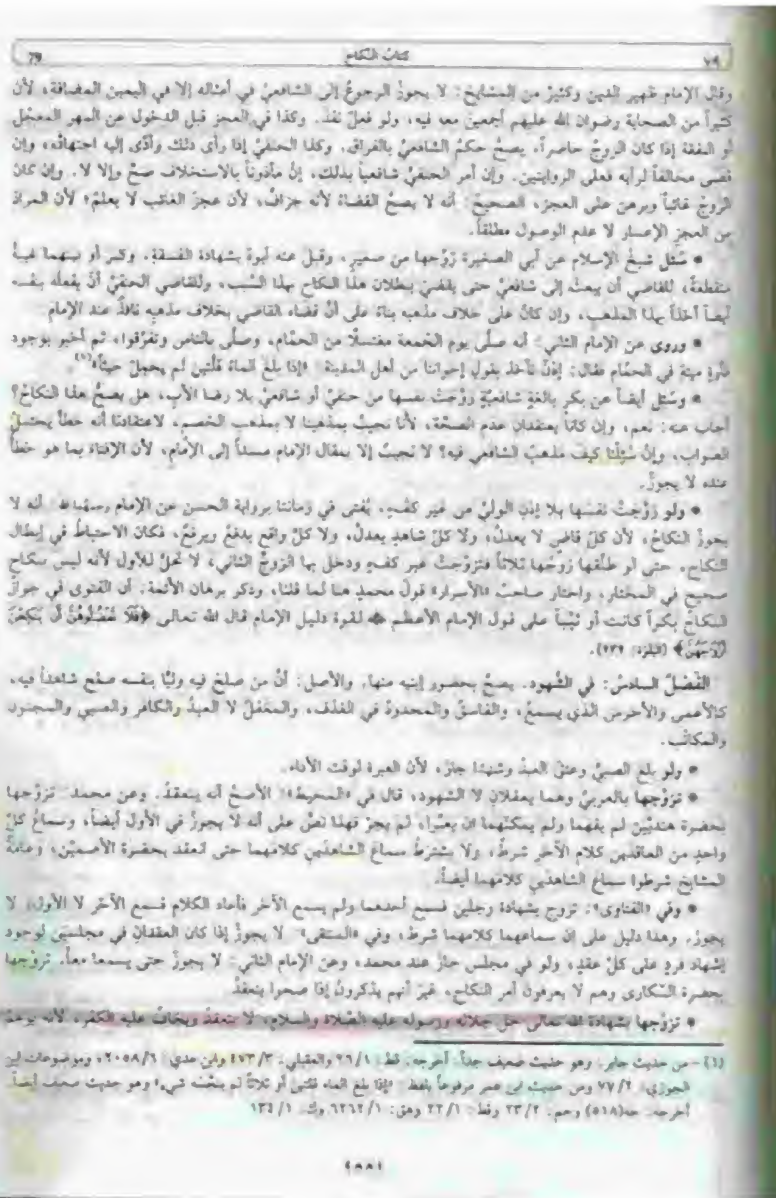 ٧٩ كتاب النكاح 79
وقال الإمام ظهير الدين وكثيرٌ من المشايخ: لا يجوزُ الرجوعُ إلى الشافعيّ في أمثاله إلا في اليمين المضافة، لأن
كثيراً من الصحابة رضوان الله عليهم أجمعين معه فيه، ولو فعلَ نفذَ. وكذا في العجز قبل الدخول عن المهر المعجّل
أو النفقة إذا كان الزوجُ حاضراً، يصحُّ حكمُ الشافعيّ بالفراق. وكذا الحنفيُّ إذا رأى ذلك وأدّى إليه اجتهادُه، وإن
قضى مخالفاً لرأيه فعلى الروايتين. وإن أمر الحنفيُّ شافعياً بذلك، إنْ مأذوناً بالاستخلاف صحَّ وإلا لا. وإن كان
الزوجُ غائباً وبرهن على العجز، الصحيحُ: أنه لا يصحُّ القضاءُ لأنه جزافٌ، لأن عجزَ الغائب لا يعلم؛ لأن المرادَ
من العجز الإعسار لا عدم الوصول مطلقاً.
* سُئل شيخُ الإسلام عن أبي الصغيرة زوّجها من صغيرٍ، وقبلَ عنه أبوهُ بشهادة الفسقةِ، وكبر أو بينهما غيبةٌ
منقطعةٌ، للقاضي أن يبعثَ إلى شافعيٍّ حتى يقضيَ ببطلان هذا النكاح بهذا السّبب، وللقاضي الحنفيّ أنْ يفعلَه بنفسه
أيضاً أخذاً بهذا المذهب، وإن كان على خلاف مذهبه بناءً على أنَّ قضاء القاضي بخلاف مذهبه نافذٌ عند الإمام.
* وروي عن الإمام الثاني: أنه صلّى يوم الجمعة مغتسلاً من الحمّام، وصلّى بالناس وتفرّقوا، ثم أخبر بوجود
فأرةٍ ميتة في الحمّام فقال: إذنْ نأخذ بقول إخواننا من أهل المدينة: «إذا بلغَ الماءُ قلّتين لم يحمل خبثاً»(١).
* وسُئل أيضاً عن بكرٍ بالغةٍ شافعيّةٍ زوّجتْ نفسها من حنفيّ أو شافعيّ بلا رضا الأب، هل يصحُّ هذا النكاحُ؟
أجاب عنه: نعم، وإن كانا يعتقدان عدم الصحّة، لأنا نجيبُ بمذهبنا لا بمذهب الخصم، لاعتقادنا أنه خطأٌ يحتملُ
الصواب، وإنْ سُئلْنا كيفَ مذهبُ الشافعي فيه؟ لا نجيبُ إلا بمقال الإمام مسنداً إلى الإمام، لأن الإفتاء بما هو خطأٌ
عنده لا يجوزُ.
* ولو زوّجتْ نفسَها بلا إذن الوليّ من غير كفْءٍ، يُفتى في زماننا برواية الحسن عن الإمام: أنه لا
يجوزُ النكاحُ، لأن كلَّ قاضٍ لا يعدلُ، ولا كلُّ شاهدٍ يعدلُ، ولا كلُّ واقع يدفعُ ويرفعُ، فكان الاحتياطُ في إبطال
النكاح. حتى لو طلّقها زوجُها ثلاثاً فتزوّجتْ غير كفءٍ ودخل بها الزوجُ الثاني، لا تحلُّ للأول لأنه ليس بنكاحٍ
صحيحٍ في المختار، واختار صاحبُ «الأسرار» قولَ محمدٍ هنا لما قلنا، وذكر برهان الأئمة: أن الفتوى في جواز
النكاح بكراً كانت أو ثيّباً على قول الإمام الأعظم ﷺ لقوة دليل الإمام قال الله تعالى ﴿فَلَا تَعْضُلُوهُنَّ أَن يَنكِحْنَ
أَزْوَاجَهُنَّ﴾ (البقرة: ٢٣٢).
الفَصْلُ السادسُ: في الشّهود. يصحُّ بحضور إبنيه منها. والأصل: أنَّ من صلحَ فيه وليًّا بنفسه صلح شاهداً فيه،
كالأعمى والأخرس الذي يسمعُ، والفاسقُ والمحدودُ في القذف، والمغفّلُ لا العبدُ والكافر والصبي والمجنون
والمكاتب.
* ولو بلغ الصبيُّ وعتقَ العبدُ وشهدا جازَ، لأنَّ العبرة لوقت الأداء.
* تزوّجها بالعربيّ وهما يعقلان لا الشهود، قال في «المحيط»: الأصحُّ أنه ينعقدُ. وعن محمد: تزوّجها
بحضرة هنديّين لم يفهما ولم يمكنْهما أن يعبّرا، لم يجزْ فهذا نصٌّ على أنه لا يجوزُ في الأول أيضاً، وسماعُ كلّ
واحدٍ من العاقدين كلام الآخر شرطٌ، ولا يشترطُ سماع الشاهدَين كلامَهما حتى انعقد بحضرة الأصمّين، وعامّةُ
المشايخ شرطوا سماعَ الشاهدين كلامَهما أيضاً.
* وفي «الفتاوى»: تزوج بشهادة رجلين فسمع أحدهما ولم يسمع الآخر فأعاد الكلام فسمع الآخر لا الأول، لا
يجوز. وهذا دليل على إن سماعهما كلامهما شرط، وفي «المنتقى»: لا يجوزُ إذا كان العقدان في مجلسَين لوجود
إشهاد فردٍ على كلّ عقدٍ، ولو في مجلس جاز عند محمد، وعن الإمام الثاني: لا يجوزُ حتى يسمعا معاً. تزوّجها
بحضرة السّكارى وهم لا يعرفون أمر النكاح، غيرَ أنهم يذكرونُ إذا صحوا ينعقدُ.
* تزوّجها بشهادة الله تعالى جلّ جلاله ورسوله عليه الصّلاة والسلام، لا ينعقدُ ويخافُ عليه الكفر، لأنه يوهمُ
(١) - من حديث جابر: وهو حديث ضعيف جداً. أخرجه: قط: ٢٦/١ والعقيلي: ٤٧٣/٣ وابن عدي: ٢٠٥٨/٦، وموضوعات ابن
الجوزي: ٧٧/٢ ومن حديث ابن عمر مرفوعاً بلفظ: «إذا بلغ الماء قلتين أو ثلاثاً لم ينجّسه شيء» وهو حديث ضعيف أيضاً.
أخرجه: جه(٥١٨) وحم: ٢٣/٢ وقط: ٢٢/١ وهق: ٢٦٢/١ وك: ١٣٤/١
(٨٨)